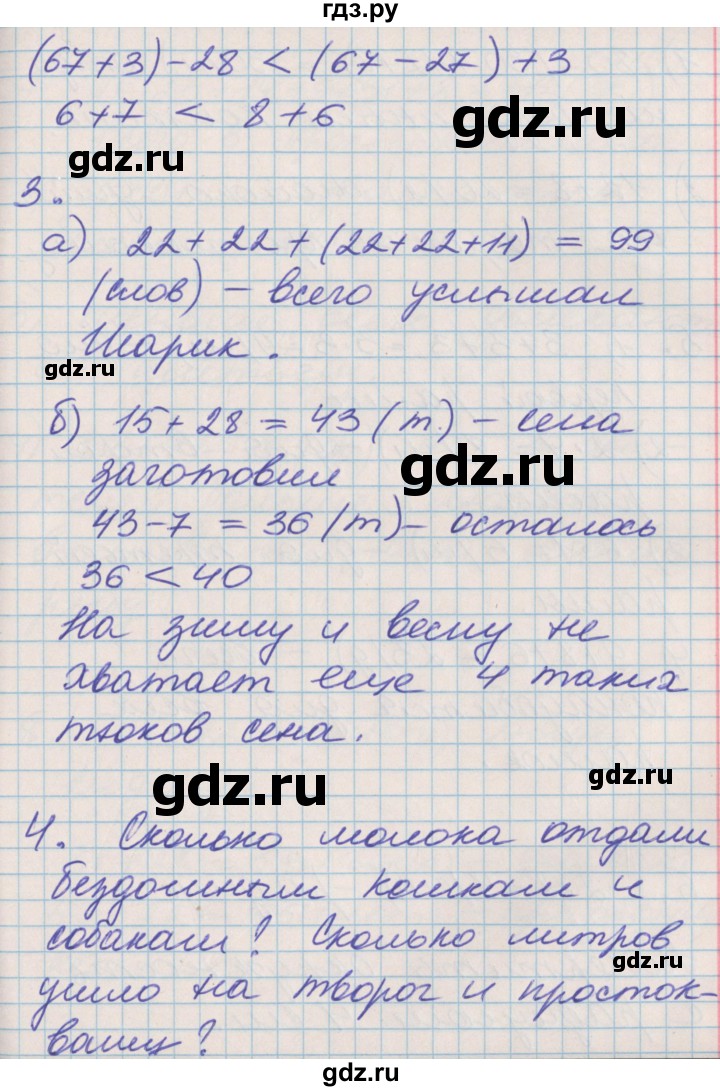 гдз.ру
(67+3)-28 < (67-27)+3
6+7 < 8+6
gdz.ru
gdz.ru
3.
а) 22+22+(22+22+11) = 99
(слов) - всего услышал
Шарик.
gdz.ru
б) 15+28 = 43 (т.) - сена
заготовил
gdz.ru
43-7 = 36 (т) - осталось
36 < 40
На зиму и весну не
хватает еще 4 таких
тюков сена.
gdz.ru
gdz.ru
4. Сколько молока отдали
бездомным кошкам и
собакам? Сколько литров
gdz.ru
ушло на творог и просток-
вашу?
gdz.ru